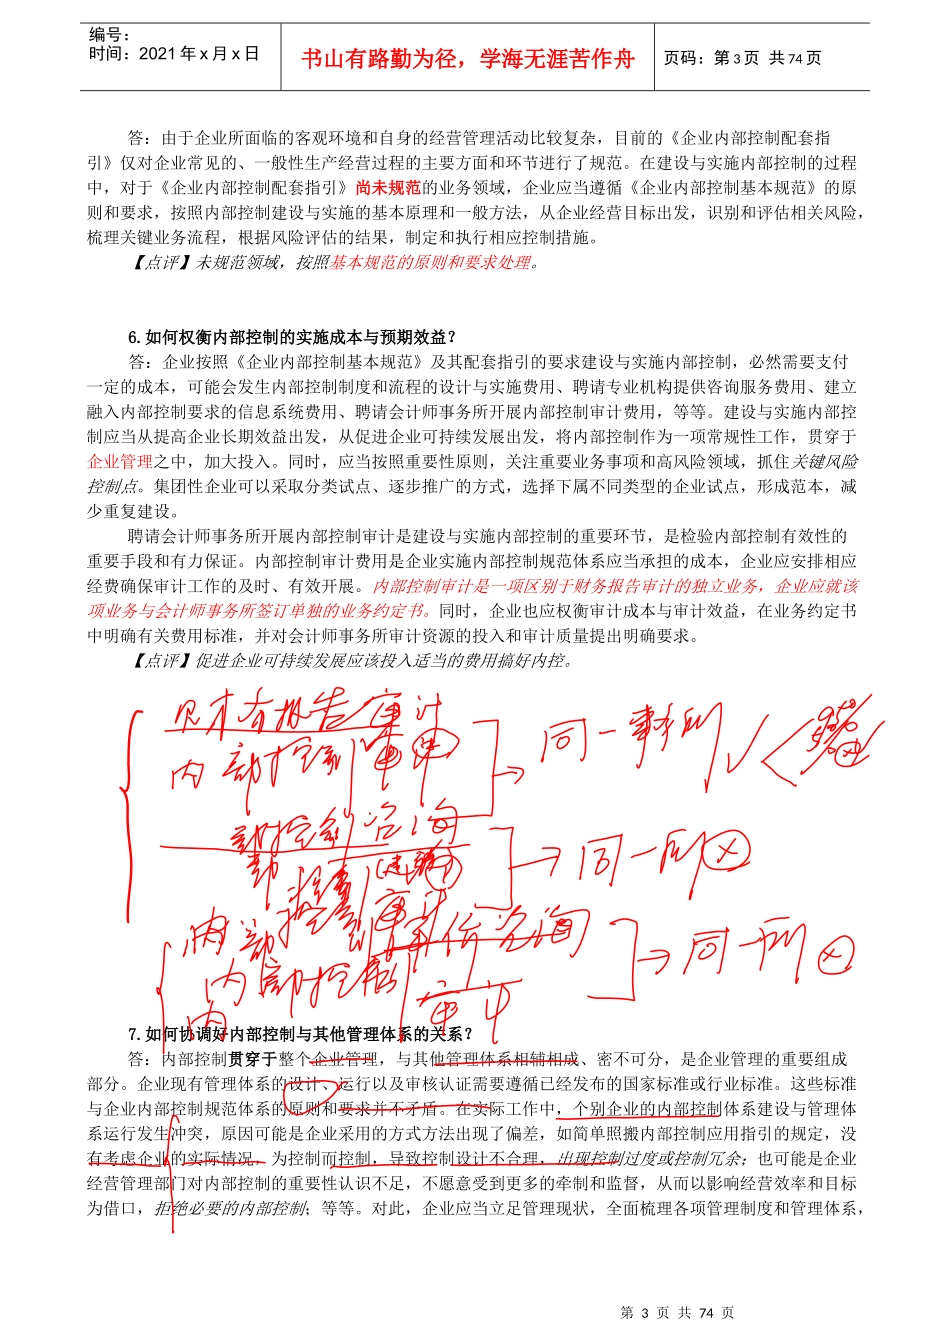 编号：
时间：2021年x月x日
书山有路勤为径，学海无涯苦作舟
页码：第3页 共74页
答：由于企业所面临的客观环境和自身的经营管理活动比较复杂，目前的《企业内部控制配套指
引》仅对企业常见的、一般性生产经营过程的主要方面和环节进行了规范。在建设与实施内部控制的过程
中，对于《企业内部控制配套指引》尚未规范的业务领域，企业应当遵循《企业内部控制基本规范》的原
则和要求，按照内部控制建设与实施的基本原理和一般方法，从企业经营目标出发，识别和评估相关风险，
梳理关键业务流程，根据风险评估的结果，制定和执行相应控制措施。
【点评】未规范领域，按照基本规范的原则和要求处理。
6.如何权衡内部控制的实施成本与预期效益？
答：企业按照《企业内部控制基本规范》及其配套指引的要求建设与实施内部控制，必然需要支付
一定的成本，可能会发生内部控制制度和流程的设计与实施费用、聘请专业机构提供咨询服务费用、建立
融入内部控制要求的信息系统费用、聘请会计师事务所开展内部控制审计费用，等等。建设与实施内部控
制应当从提高企业长期效益出发，从促进企业可持续发展出发，将内部控制作为一项常规性工作，贯穿于
企业管理之中，加大投入。同时，应当按照重要性原则，关注重要业务事项和高风险领域，抓住关键风险
控制点。集团性企业可以采取分类试点、逐步推广的方式，选择下属不同类型的企业试点，形成范本，减
少重复建设。
聘请会计师事务所开展内部控制审计是建设与实施内部控制的重要环节，是检验内部控制有效性的
重要手段和有力保证。内部控制审计费用是企业实施内部控制规范体系应当承担的成本，企业应安排相应
经费确保审计工作的及时、有效开展。内部控制审计是一项区别于财务报告审计的独立业务，企业应就该
项业务与会计师事务所签订单独的业务约定书。同时，企业也应权衡审计成本与审计效益，在业务约定书
中明确有关费用标准，并对会计师事务所审计资源的投入和审计质量提出明确要求。
【点评】促进企业可持续发展应该投入适当的费用搞好内控。
报告审计
内部控制审计
同一事所
内部控制
审计
同一所
7.如何协调好内部控制与其他管理体系的关系？
答：内部控制贯穿于整个企业管理，与其他管理体系相辅相成、密不可分，是企业管理的重要组成
部分。企业现有管理体系的设计、运行以及审核认证需要遵循已经发布的国家标准或行业标准。这些标准
与企业内部控制规范体系的原则和要求并不矛盾。在实际工作中，个别企业的内部控制体系建设与管理体
系运行发生冲突，原因可能是企业采用的方式方法出现了偏差，如简单照搬内部控制应用指引的规定，没
有考虑企业的实际情况，为控制而控制，导致控制设计不合理，出现控制过度或控制冗余；也可能是企业
经营管理部门对内部控制的重要性认识不足，不愿意受到更多的牵制和监督，从而以影响经营效率和目标
为借口，拒绝必要的内部控制；等等。对此，企业应当立足管理现状，全面梳理各项管理制度和管理体系，
第 3 页 共 74 页